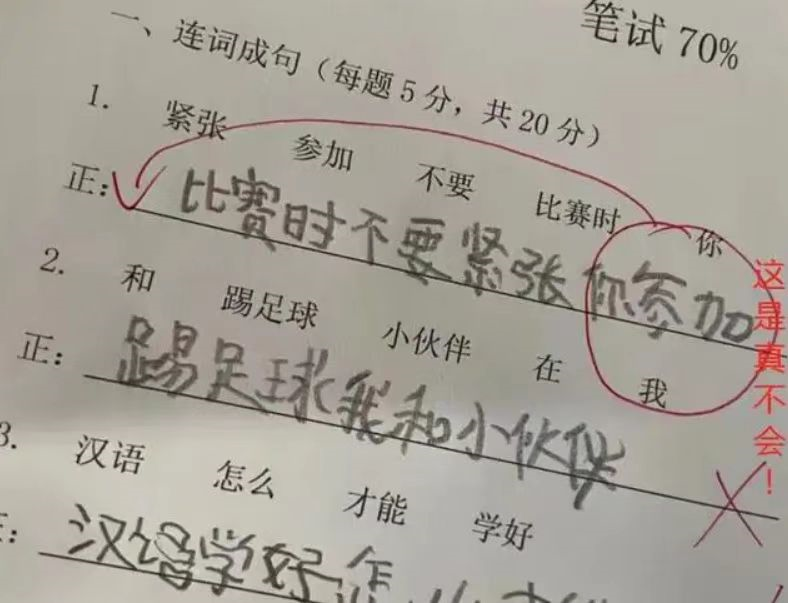 笔试 70%
一、连词成句（每题 5 分，共 20 分）
1. 紧张 参加 不要 比赛时 你
正：比赛时不要紧张你参加
2. 和 踢足球 小伙伴 在 我
正：踢足球我和小伙伴
3. 汉语 怎么 才能 学好
汉语学好怎
这是真不会！